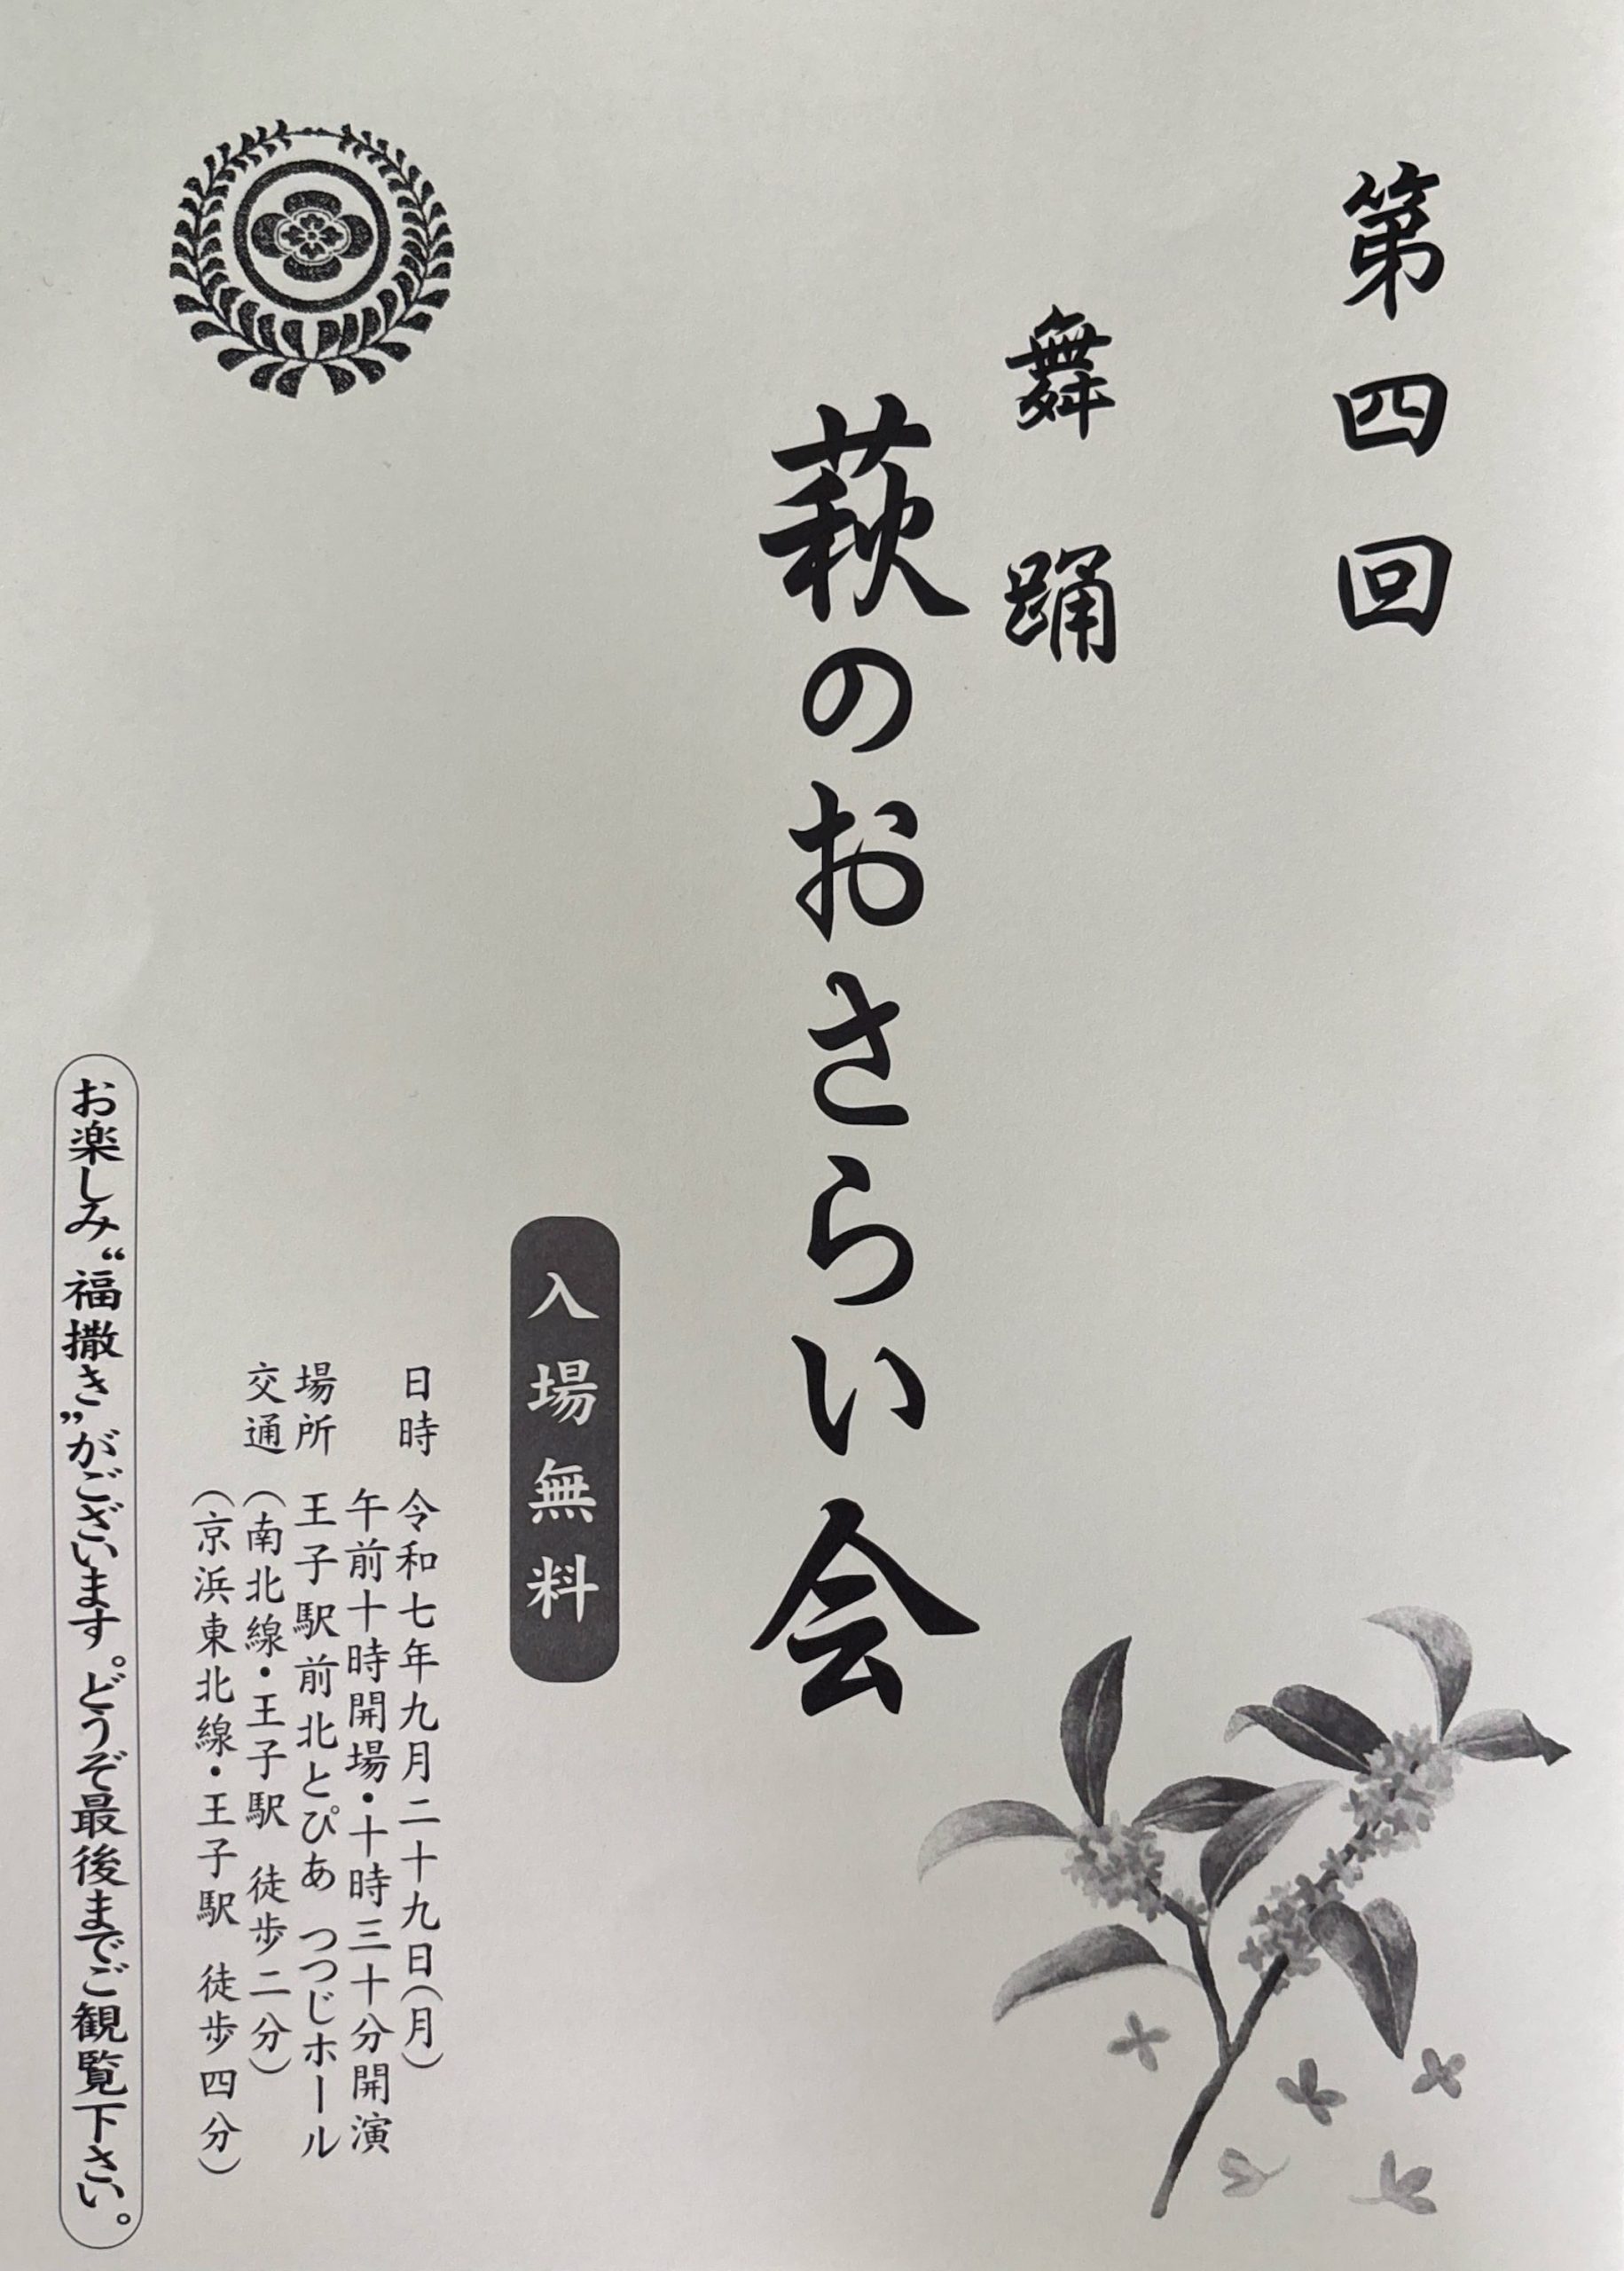 第四回
舞踊
萩のおさらい会
入場無料
日時 令和七年九月二十九日(月)
午前十時開場・十時三十分開演
場所 王子駅前北とぴあ つつじホール
交通 (南北線・王子駅 徒歩二分)
(京浜東北線・王子駅 徒歩四分)
お楽しみ“福撒き”がございます。どうぞ最後までご観覧下さい。